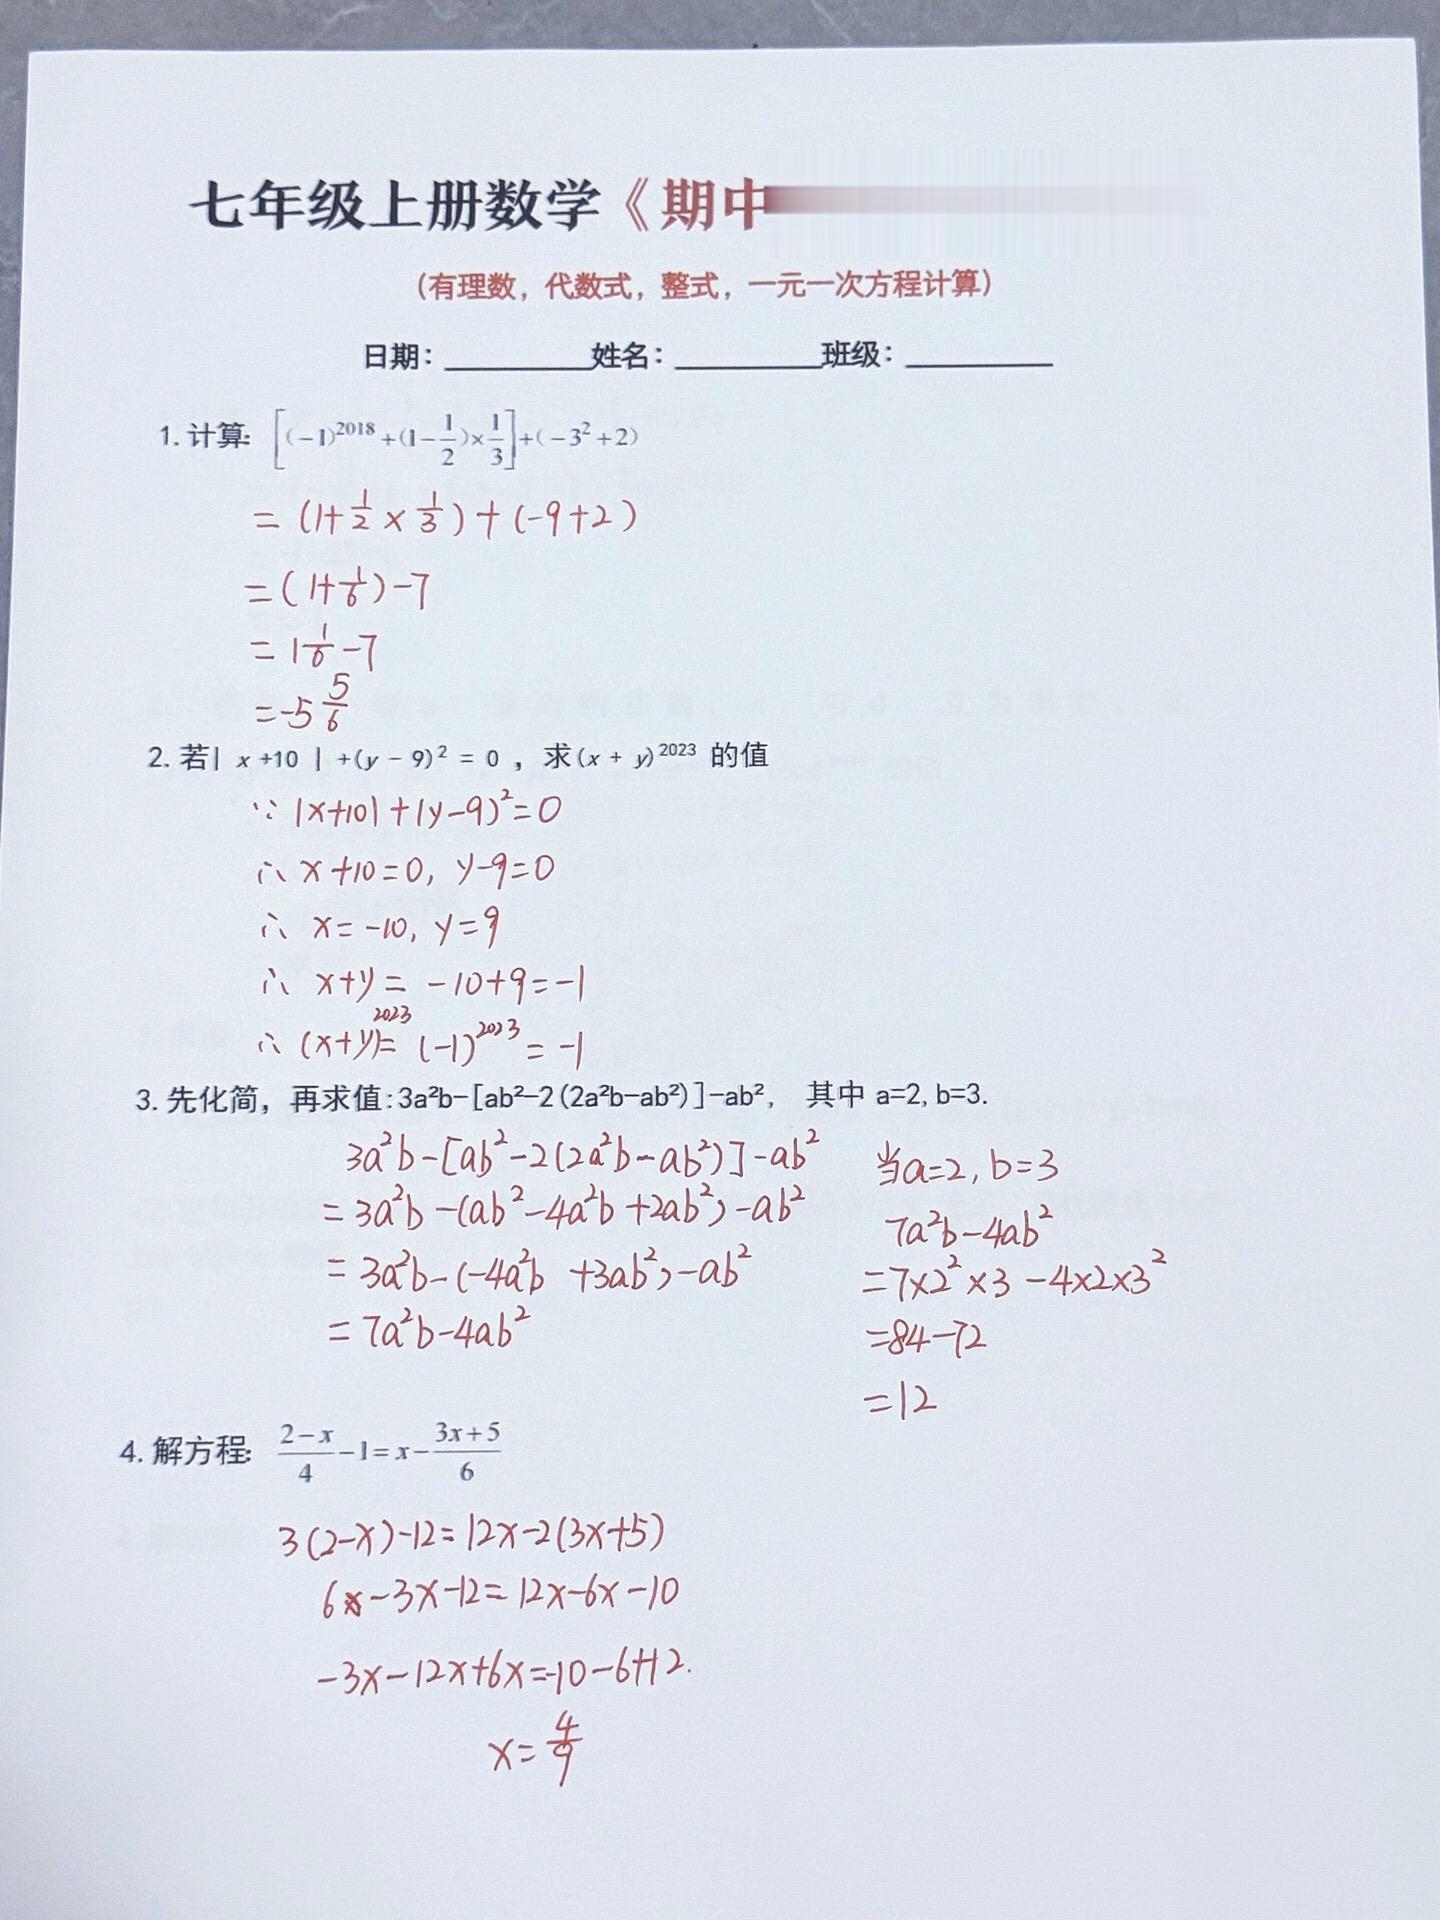 七年级上册数学《期中
（有理数，代数式，整式，一元一次方程计算）
日期：________姓名：________班级：________
1. 计算: [(−1)²⁰¹⁸+(1−1/2)×1/3]+(−3²+2)
= (1+1/2×1/3)+(-9+2)
=(1+1/6)-7
= 1 1/6-7
=-5 5/6
2. 若| x +10 | +(y − 9)² = 0 ，求(x + y)²⁰²³ 的值
∵ |x+10|+(y-9)²=0
∴ x+10=0, y-9=0
∴ x=-10, y=9
∴ x+y= -10+9=-1
∴ (x+y)²⁰²³= (-1)²⁰²³=-1
3. 先化简，再求值:3a²b−[ab²−2(2a²b−ab²)]−ab², 其中 a=2, b=3.
3a²b-[ab²-2(2a²b-ab²)]-ab²
= 3a²b-(ab²-4a²b+2ab²)-ab²
= 3a²b-(-4a²b +3ab²)-ab²
= 7a²b-4ab²
当a=2, b=3
7a²b-4ab²
=7×2²×3-4×2×3²
=84-72
=12
4. 解方程: (2−x)/4−1=x−(3x+5)/6
3(2-x)-12=12x-2(3x+5)
6-3x-12=12x-6x-10
-3x-12x+6x=-10-6+12.
x=4/9